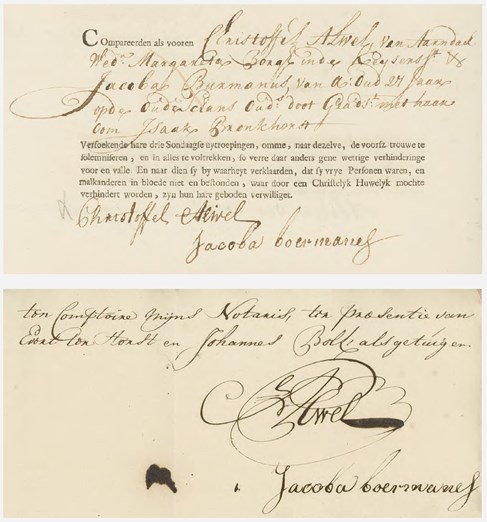 Compareerden als vooren Christoffel Alwel, van Aarndael
Wedr. Margareta Borgh inde Keysersst &
Jacoba Burmanus, van A: Oud 24 Jaar
opde Oude Schans Ouds. doot Geadst. met haar
Oom Isaak Bronkhorst
Versoekende hare drie Sondaagse uytroepingen, omme, naar dezelve, de voorsz. trouwe te
solemniseren, en in alles te voltrekken, so verre daar anders gene wettige verhinderinge
voor en valle. En naar dien sy by waarheyt verklaarden, dat sy vrye Personen waren, en
malkanderen in bloede niet en bestonden, waar door een Christelyk Huwelyk mochte
verhindert worden, zyn hun hare geboden verwilliget.
Christoffel Alwel
Jacoba boermanes
ten Comptoire mijns Notaris, ter præsentie van
Evert ter Horst en Johannes Bolk als getuigen.
C Alwel
Jacoba boermanes